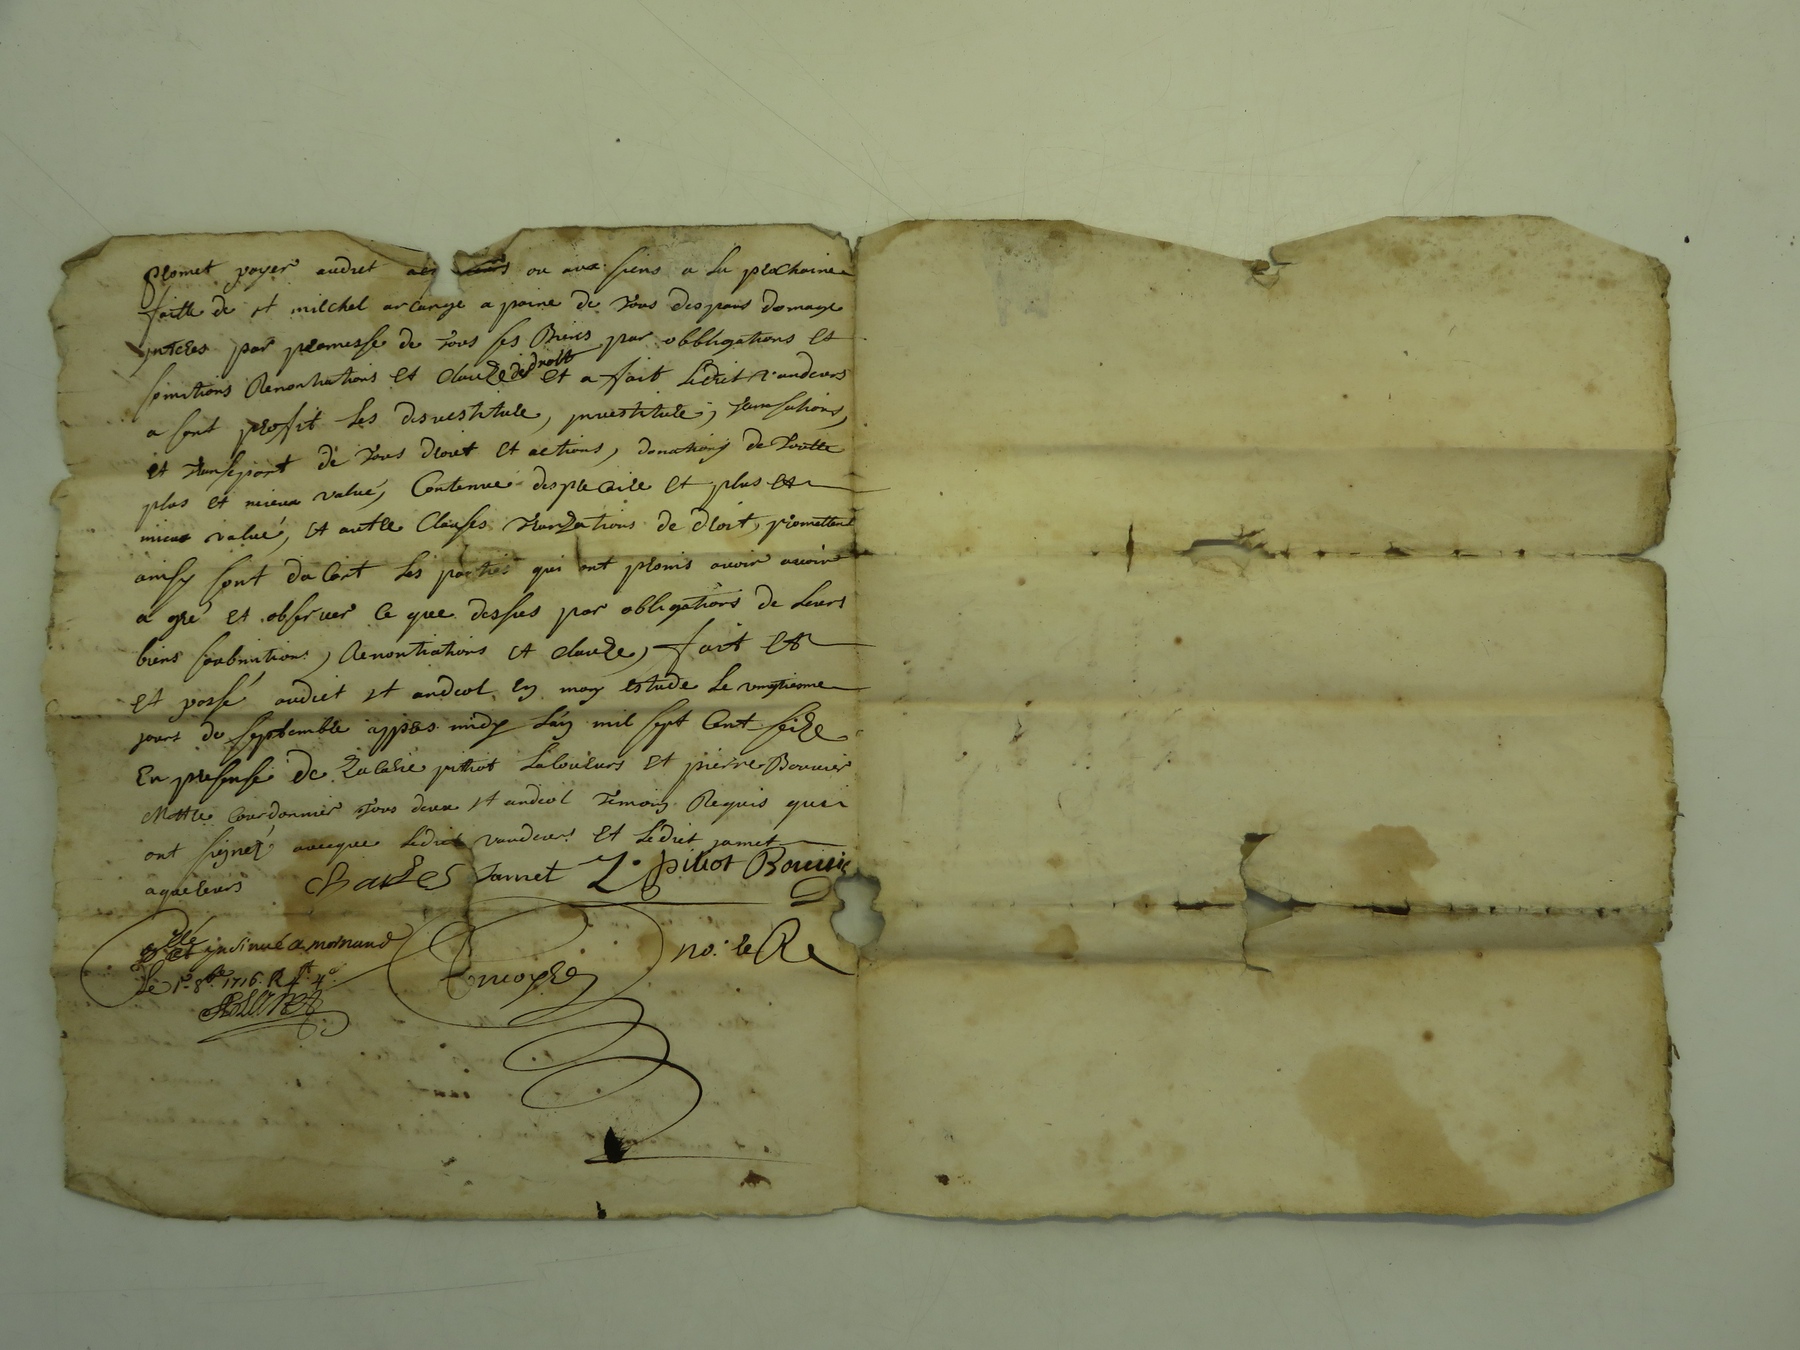 promet payer audict ou aux siens a la prochaine
faitte de st milchel arcange a paine de tous despans domage
interes par promesse de tous ses Biens par obbligations et
somitions Renontiations et clauze de droit et a fait ledict vandeurs
a sont profit les desvestiture, investiture, translations,
et transport de tous droict et actions, donations de toutte
plus et mieux value, Contenue desprecaire et plus et
mieux value, et autre Clauses translations de droit, promettent
ainsy sont dacort les parties qui ont promis avoir avoir
a gré et observer ce que dessus par obligations de leurs
biens soubmitions, Renontiations et clauze, fait et
et passé audict st andeol en mon estude le vingtiesme
jours de septembre appres midy l'an mil sept cent seize
En presense de Zacarie pithiot laboueurs et pierre Bouvier
Mettre Courdonnier tous deux st andeol temoins Requis qui
ont signez avecque ledict vandeurs et ledict jamet
aquereurs Charles Jamet Z. pitiot Bouvie
insinué a mornand no.re Re
le 1er 8bre 1716. R